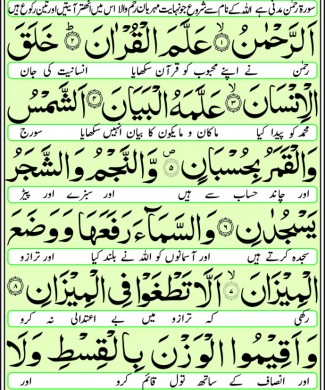 سورۃ رحمٰن مدنی ہے اللہ کے نام سے شروع جو نہایت مہربان رحم والا اس میں اٹھتر آیتیں اور تین رکوع ہیں
اَلرَّحْمٰنُ ۝١ عَلَّمَ الْقُرْاٰنَ ۝٢ خَلَقَ
رحمٰن نے اپنے محبوب کو قرآن سکھایا انسانیت کی جان
الْاِنْسَانَ ۝٣ عَلَّمَهُ الْبَيَانَ ۝٤ اَلشَّمْسُ
محمد کو پیدا کیا ماکان و مایکون کا بیان انہیں سکھایا سورج
وَالْقَمَرُ بِحُسْبَانٍ ۝٥ وَّالنَّجْمُ وَالشَّجَرُ
اور چاند حساب سے ہیں اور سبزے اور پیڑ
يَسْجُدٰنِ ۝٦ وَالسَّمَآءَ رَفَعَهَا وَوَضَعَ
سجدہ کرتے ہیں اور آسمانوں کو اللہ نے بلند کیا اور ترازو
الْمِيْزَانَ ۝٧ اَلَّا تَطْغَوْا فِى الْمِيْزَانِ ۝٨
رکھی کہ ترازو میں بے اعتدالی نہ کرو
وَاَقِيْمُوا الْوَزْنَ بِالْقِسْطِ وَلَا
اور انصاف کے ساتھ تول قائم کرو اور